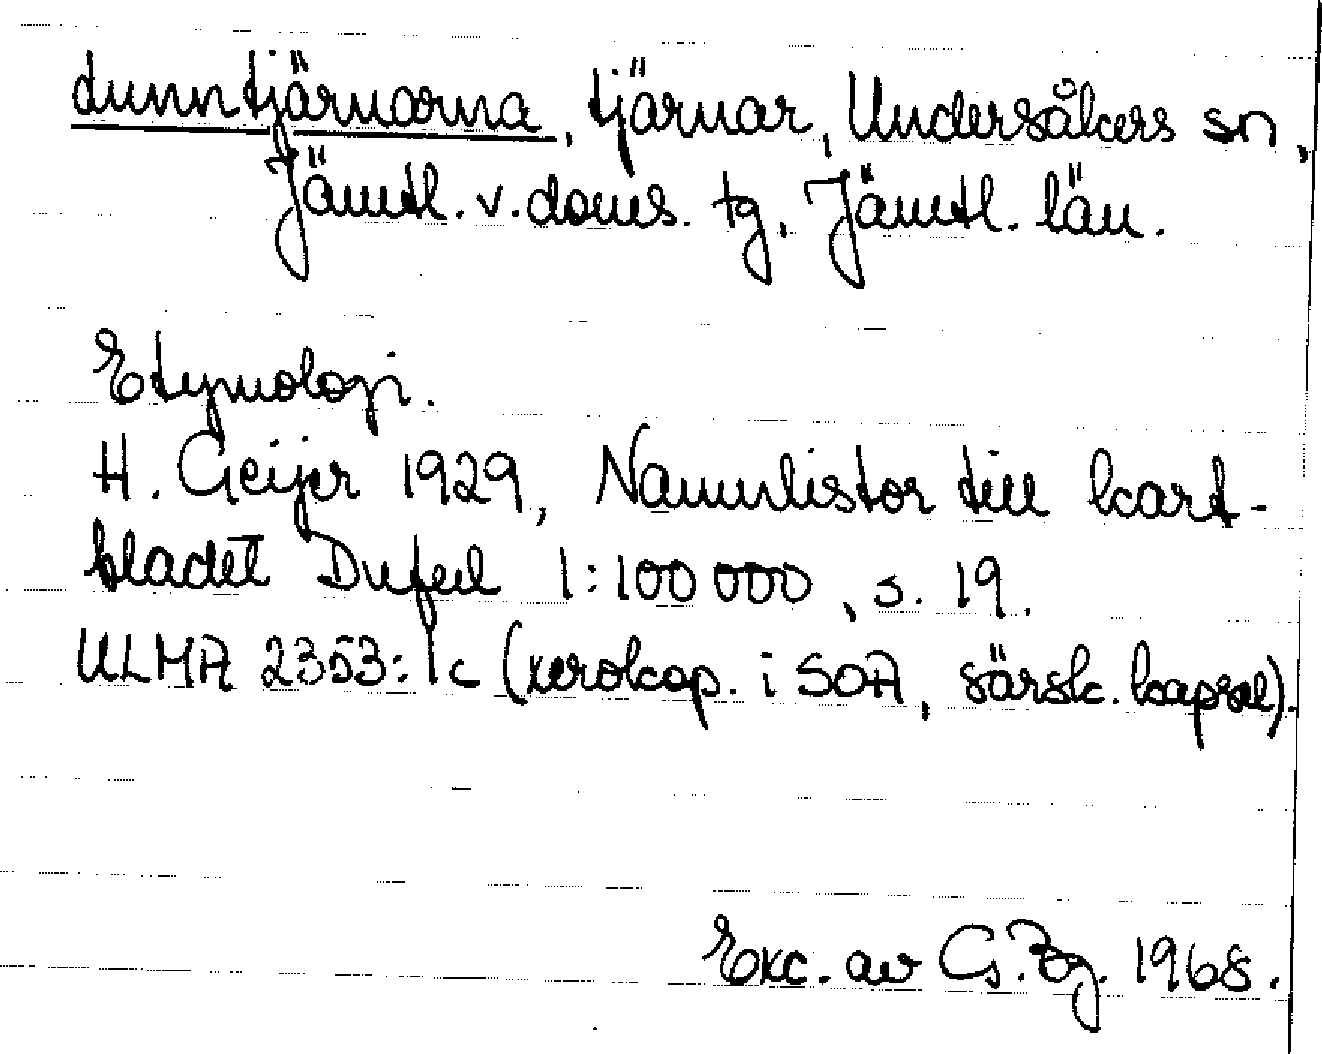 dunntjärnarna, tjärnar, Undersåkers sn,
Jämtl. v. doms. tg, Jämtl. län.
Etymologi.
H. Geijer 1929, Namnlistor till kart-
bladet Dufed 1:100 000, s. 19.
ULMA 2353:1c (xerokop. i SOA, särsk. kapsel).
Exc. av G. Bg. 1968.